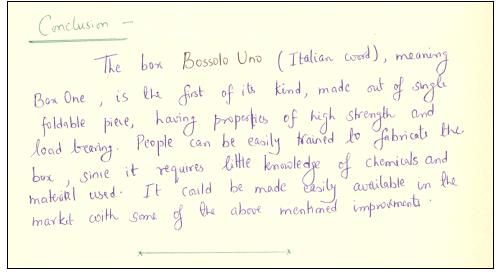 Conclusion -
The box Bossolo Uno (Italian word), meaning
Box One, is the first of its kind, made out of single
foldable piece, having properties of high strength and
load bearing. People can be easily trained to fabricate the
box, since it requires little knowledge of chemicals and
material used. It could be made easily available in the
market with some of the above mentioned improvements.